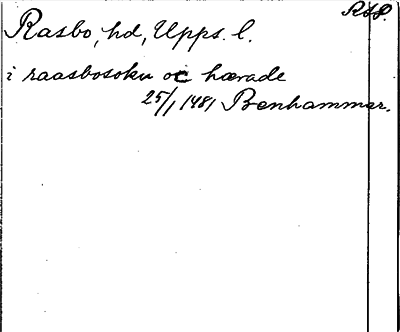 RSP.
Rasbo, hd, Upps. l.
i raasbosokn oc hærade
25/1 1481 Benhammar.